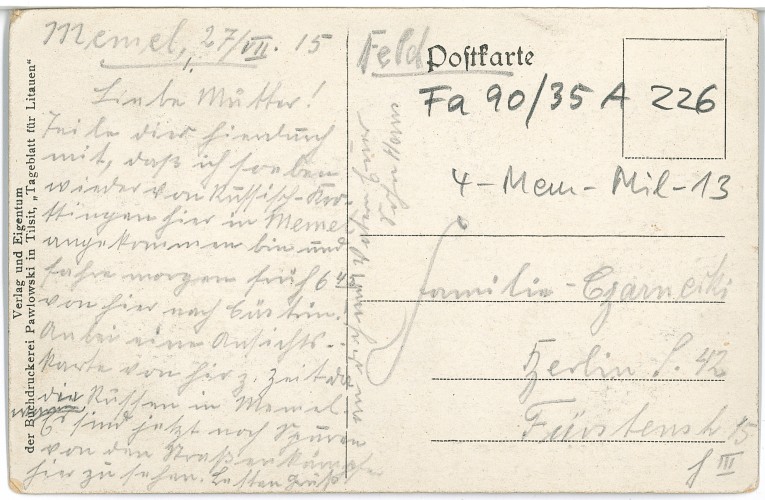 Memel, 27/VII. 15
Liebe Mutter!
Teile dir hierdurch
mit, daß ich soeben
wieder von Russisch-Krot-
tingen hier in Memel
angekommen bin und
fahre morgen früh 6
von hier nach Cüstrin.
Anbei eine Ansichts-
karte von hier z. Zeit da
die Russen in Memel
waren
Es sind jetzt noch Spuren
von den Straßenkämpfen
hier zu sehen. Besten Gruß
Feldpostkarte
Fa 90/35 A 226
4-Mem-Mil-13
Familie Czarnecki
Berlin S. 42
Fürstenstr 15
III
Verlag und Eigentum
der Buchdruckerei Pawlowski in Tilsit, „Tageblatt für Litauen"